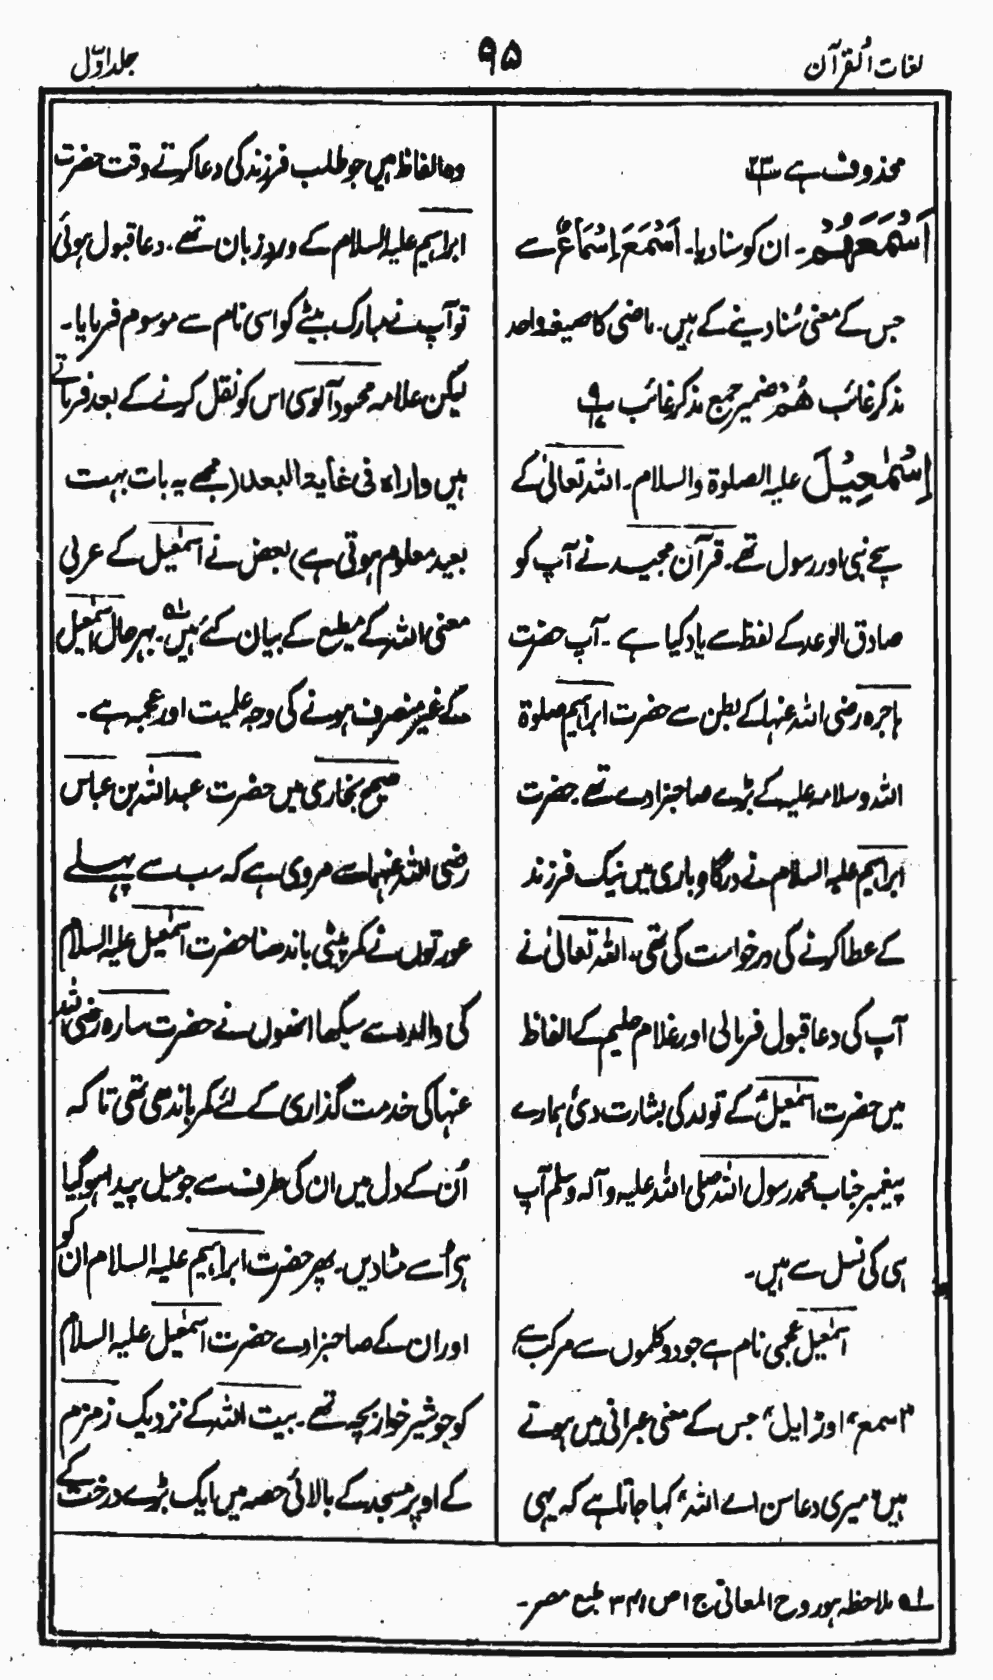 لغات القرآن
۹۵
جلد اوّل
محذوف ہے
اَسْمَعَهُمْ۔ ان کو سنا دیا۔ اَسْمَعَ اِسْمَاعٌ سے
جس کے معنی سُنا دینے کے ہیں۔ ماضی کا صیغہ واحد
مذکر غائب هُمْ ضمیر جمع مذکر غائب
اِسْمٰعِیْلَ علیہ الصلوٰۃ والسلام۔ اللہ تعالیٰ کے
سچے نبی اور رسول تھے۔ قرآن مجید نے آپ کو
صادق الوعد کے لفظ سے یاد کیا ہے۔ آپ حضرت
ہاجرہ رضی اللہ عنہا کے بطن سے حضرت ابراہیم صلوٰۃ
اللہ وسلامہ علیہ کے بڑے صاحبزادے تھے۔ حضرت
ابراہیم علیہ السلام نے درگاہ باری میں نیک فرزند
کے عطا کرنے کی درخواست کی تھی۔ اللہ تعالیٰ نے
آپ کی دعا قبول فرمالی اور غلام حلیم کے الفاظ
میں حضرت اسمٰعیلؑ کے تولد کی بشارت دی۔ ہمارے
پیغمبر جناب محمد رسول اللہ صلی اللہ علیہ وآلہ وسلم آپ
ہی کی نسل سے ہیں۔
اسمٰعیل عجمی نام ہے جو دو کلموں سے مرکب ہے،
"اسمع" اور "ایل" جس کے معنی عبرانی میں ہوتے
ہیں "میری دعا سن اے اللہ" کہا جاتا ہے کہ یہی
وہ الفاظ ہیں جو طلب فرزند کی دعا کرتے وقت حضرت
ابراہیم علیہ السلام کے ورد زبان تھے۔ دعا قبول ہوئی
تو آپ نے مبارک بیٹے کو اسی نام سے موسوم فرمایا۔
لیکن علامہ محمود آلوسی اس کو نقل کرنے کے بعد فرماتے
ہیں واراہ فی غایۃ البعد (مجھے یہ بات بہت
بعید معلوم ہوتی ہے) بعض نے اسمٰعیل کے عربی
معنی اللہ کے مطیع کے بیان کئے ہیں۱؎۔ بہرحال اسمٰعیل
کے غیر منصرف ہونے کی وجہ علمیت اور عجمہ ہے۔
صحیح بخاری میں حضرت عبداللہ بن عباس
رضی اللہ عنہما سے مروی ہے کہ سب سے پہلے
عورتوں نے کمر پٹی باندھنا حضرت اسمٰعیل علیہ السلام
کی والدہ سے سیکھا انھوں نے حضرت سارہ رضی اللہ
عنہا کی خدمت گذاری کے لئے کمر باندھی تھی تاکہ
اُن کے دل میں ان کی طرف سے جو میل پیدا ہوگیا
ہو اُسے مٹا دیں۔ پھر حضرت ابراہیم علیہ السلام ان کو
اور ان کے صاحبزادے حضرت اسمٰعیل علیہ السلام
کو جو شیر خوار بچہ تھے۔ بیت اللہ کے نزدیک زمزم
کے اوپر مسجد کے بالائی حصہ میں ایک بڑے درخت کے
۱؎ ملاحظہ ہو روح المعانی ج ۱ ص ۳۴۱ طبع مصر۔